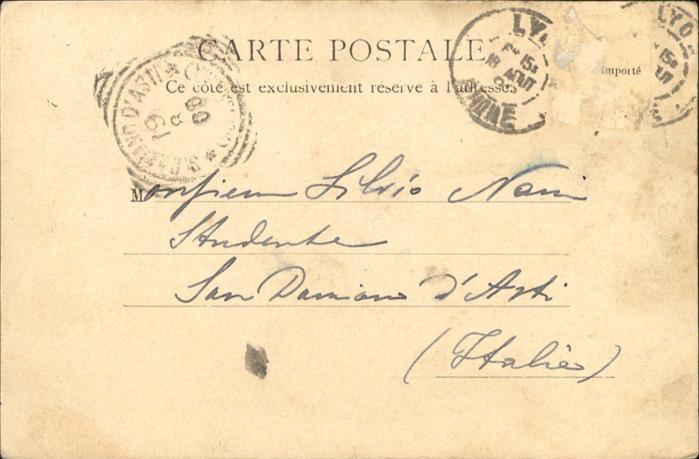 CARTE POSTALE
Ce côté est exclusivement réservé à l'adresse
Importé
LYON
RHONE
15
18 AOUT
LYON
15
AOUT
S. DAMIANO D'ASTI
19 8 00
Monsieur Silvio Nani
Studente
San Damiano d'Asti
(Italie)